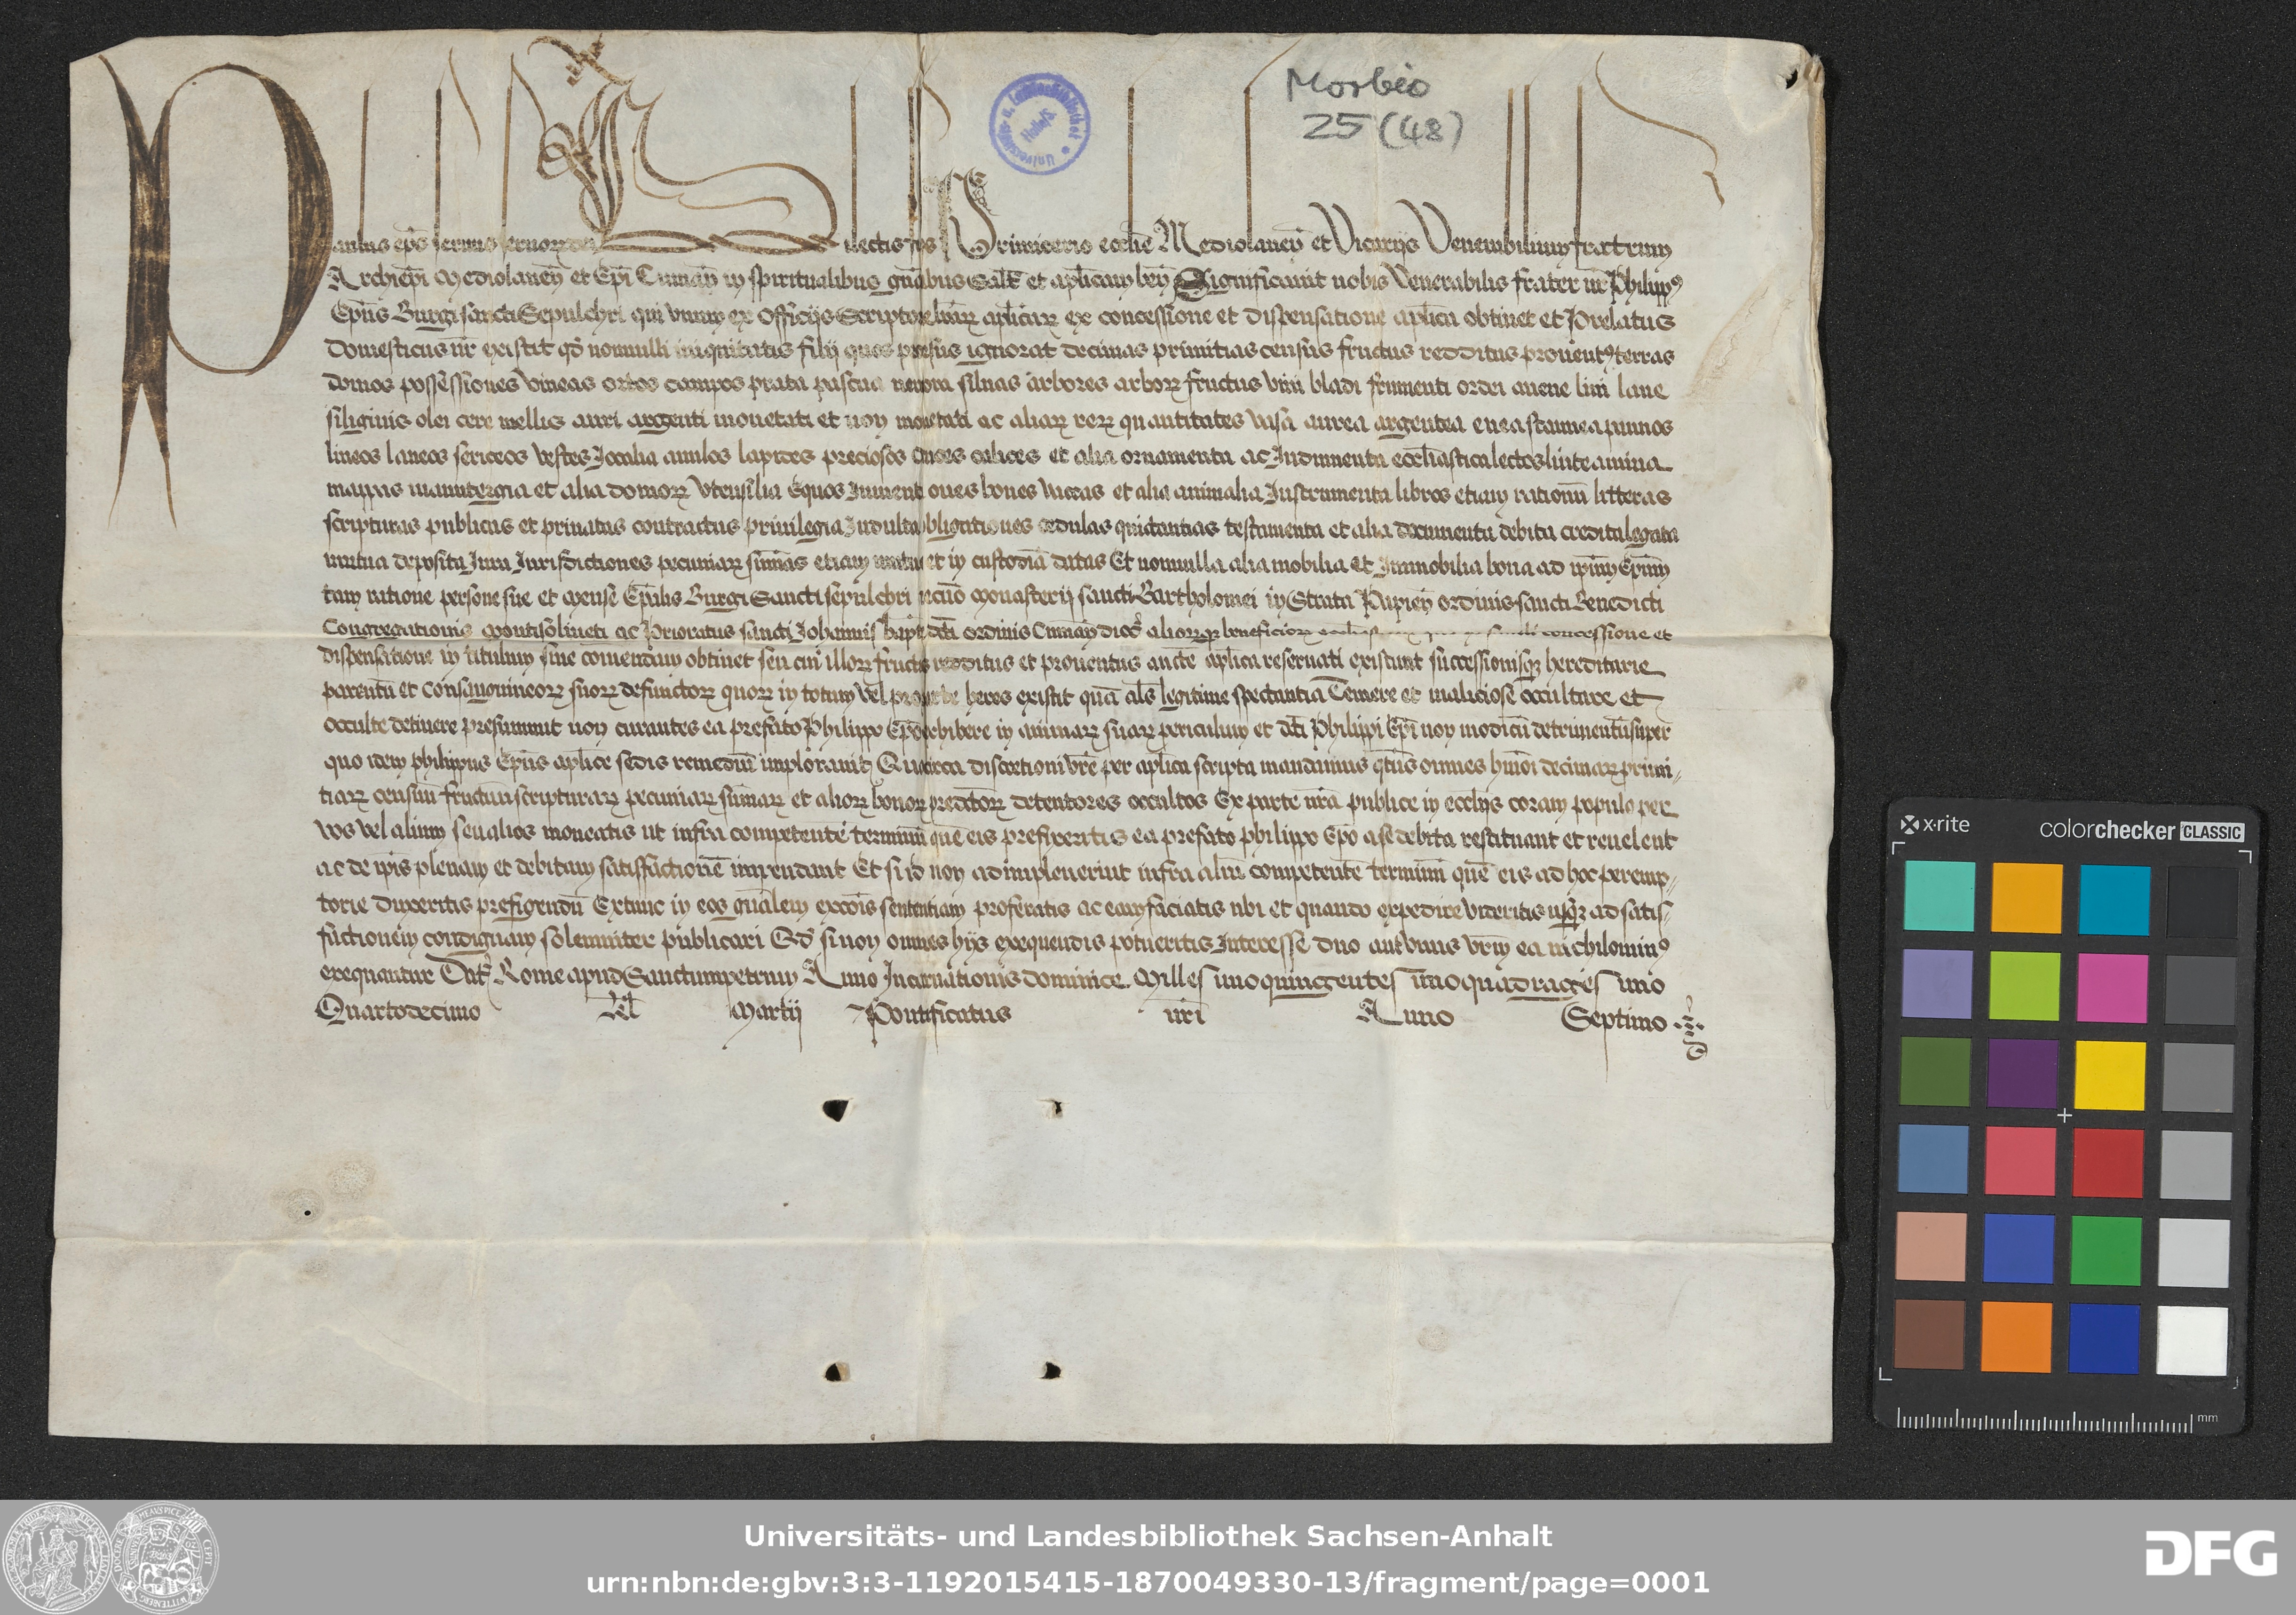 Morbio
25 (48)
Paulus ep̄s seruus seruoꝝ dei Dilectis filijs Primicerio eccl̄ie Mediolaneñ et Vicarijs Venerabilium fratrum
Archiep̄i Mediolaneñ et Ep̄i Cumañ in spiritualibus gn̄alibus Sal̄t et apl̄icam ben̄ Significauit nobis Venerabilis frater nr̄ Philippꝰ
Ep̄us Burgi sancti Sepulchri qui vnum ex Officijs Scriptorie lr̄arꝝ apl̄icarꝝ ex concessione et dispensatione apl̄ica obtinet et Prelatus
Domesticus nr̄ existit qd̄ nonnulli iniquitatis filij quos prorsus ignorat decimas primitias census fructus redditus prouentꝰ terras
domos possessiones vineas ortos campos prata pascua nemora siluas arbores arborꝝ fructus vini bladi frumenti ordei auene lini lane
siliginis olei cere mellis auri argenti monetati et non monetati ac aliarꝝ rerꝝ quantitates vasa aurea argentea enea stannea pannos
lineos laneos sericeos vestes Jocalia anulos lapides preciosos cruces calices et alia ornamenta ac Indumenta eccl̄iastica lectos linteamina
mappas manutergia et alia domorꝝ vtensilia Equos Iumenta oues boues vaccas et alia animalia Instrumenta libros etiam rationū litteras
scripturas publicas et priuatas contractus priuilegia Indulta obligationes cedulas quictantias testamenta et alia documenta debita credita legata
mutua deposita Iura Iurisdictiones pecuniarꝝ sum̄as etiam mutuo et in custodiā datas Et nonnulla alia mobilia et Immobilia bona ad ip̄m Ep̄m
tam ratione persone sue et mense Ep̄alis Burgi Sancti sepulchri necnō Monasterij sancti Bartholomei in Strata Papieñ ordinis sancti Benedicti
Congregationis Montisoliueti ac Prioratus sancti Johannis bap̄te dc̄ti ordinis Cumañ dioc̄ aliorꝝqꝫ beneficiorꝝ concessione et
dispensatione in titulum siue com̄endam obtinet seu cui illorꝝ fructus redditus et prouentus aucte apl̄ica reseruati existunt successionisqꝫ hereditarie
parentū et consanguineorꝝ suorꝝ defunctorꝝ quorꝝ in totum vel pro parte heres existit quā al̄s legitime spectantia Temere et maliciose occultare et
occulte detinere presumunt non curantes ea prefato Philippo Ep̄o exhibere in animarꝝ suarꝝ periculum et dc̄ti Philippi Ep̄i non modicū detrimentū super
quo idem philippus Ep̄us aplīce sedis remediū implorauit Quocirca discretioni vr̄e per apl̄ica scripta mandamus qt̄us omnes hm̄oi decimarꝝ primi-
tiarꝝ censuū fructuū scripturarꝝ pecuniarꝝ sum̄arꝝ et aliorꝝ bonorꝝ predc̄torꝝ detentores occultos Ex parte nr̄a publice in eccl̄ijs coram populo per
vos vel alium seu alios moneatis ut infra competentē terminū quē eis prefixeritis ea prefato philippo Ep̄o a se debita restituant et reuelent
ac de ip̄is plenam et debitam satisfactionē impendant Et si id non adimpleuerint infra aliū competentē terminū quē eis ad hoc peremp-
torie duxeritis prefigendū Extunc in eos gn̄alem excōis sententiam proferatis ac eam faciatis vbi et quando expedire videritis usqꝫ ad satis-
factionem condignam solenniter publicari Qd̄ si non omnes hijs exequendis potueritis Interesse duo aut vnus vr̄m ea nichilominꝰ
exequantur Dat̄ Rome apud Sanctumpetrum Anno Incarnationis dominice Millesimoquingentesimoquadragesimo
Quartodecimo Kl̄ Martij Pontificatus nr̄i Anno Septimo
Universitäts- und Landesbibliothek Sachsen-Anhalt
urn:nbn:de:gbv:3:3-1192015415-1870049330-13/fragment/page=0001
DFG
x·rite
colorchecker CLASSIC
mm